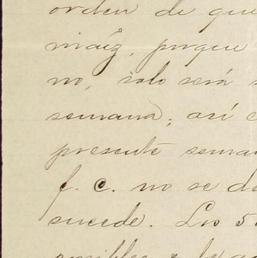 orden de que
maíz, porque
no, solo será
semana; así
presente seman
f. c. no se d
sucede. Los 5